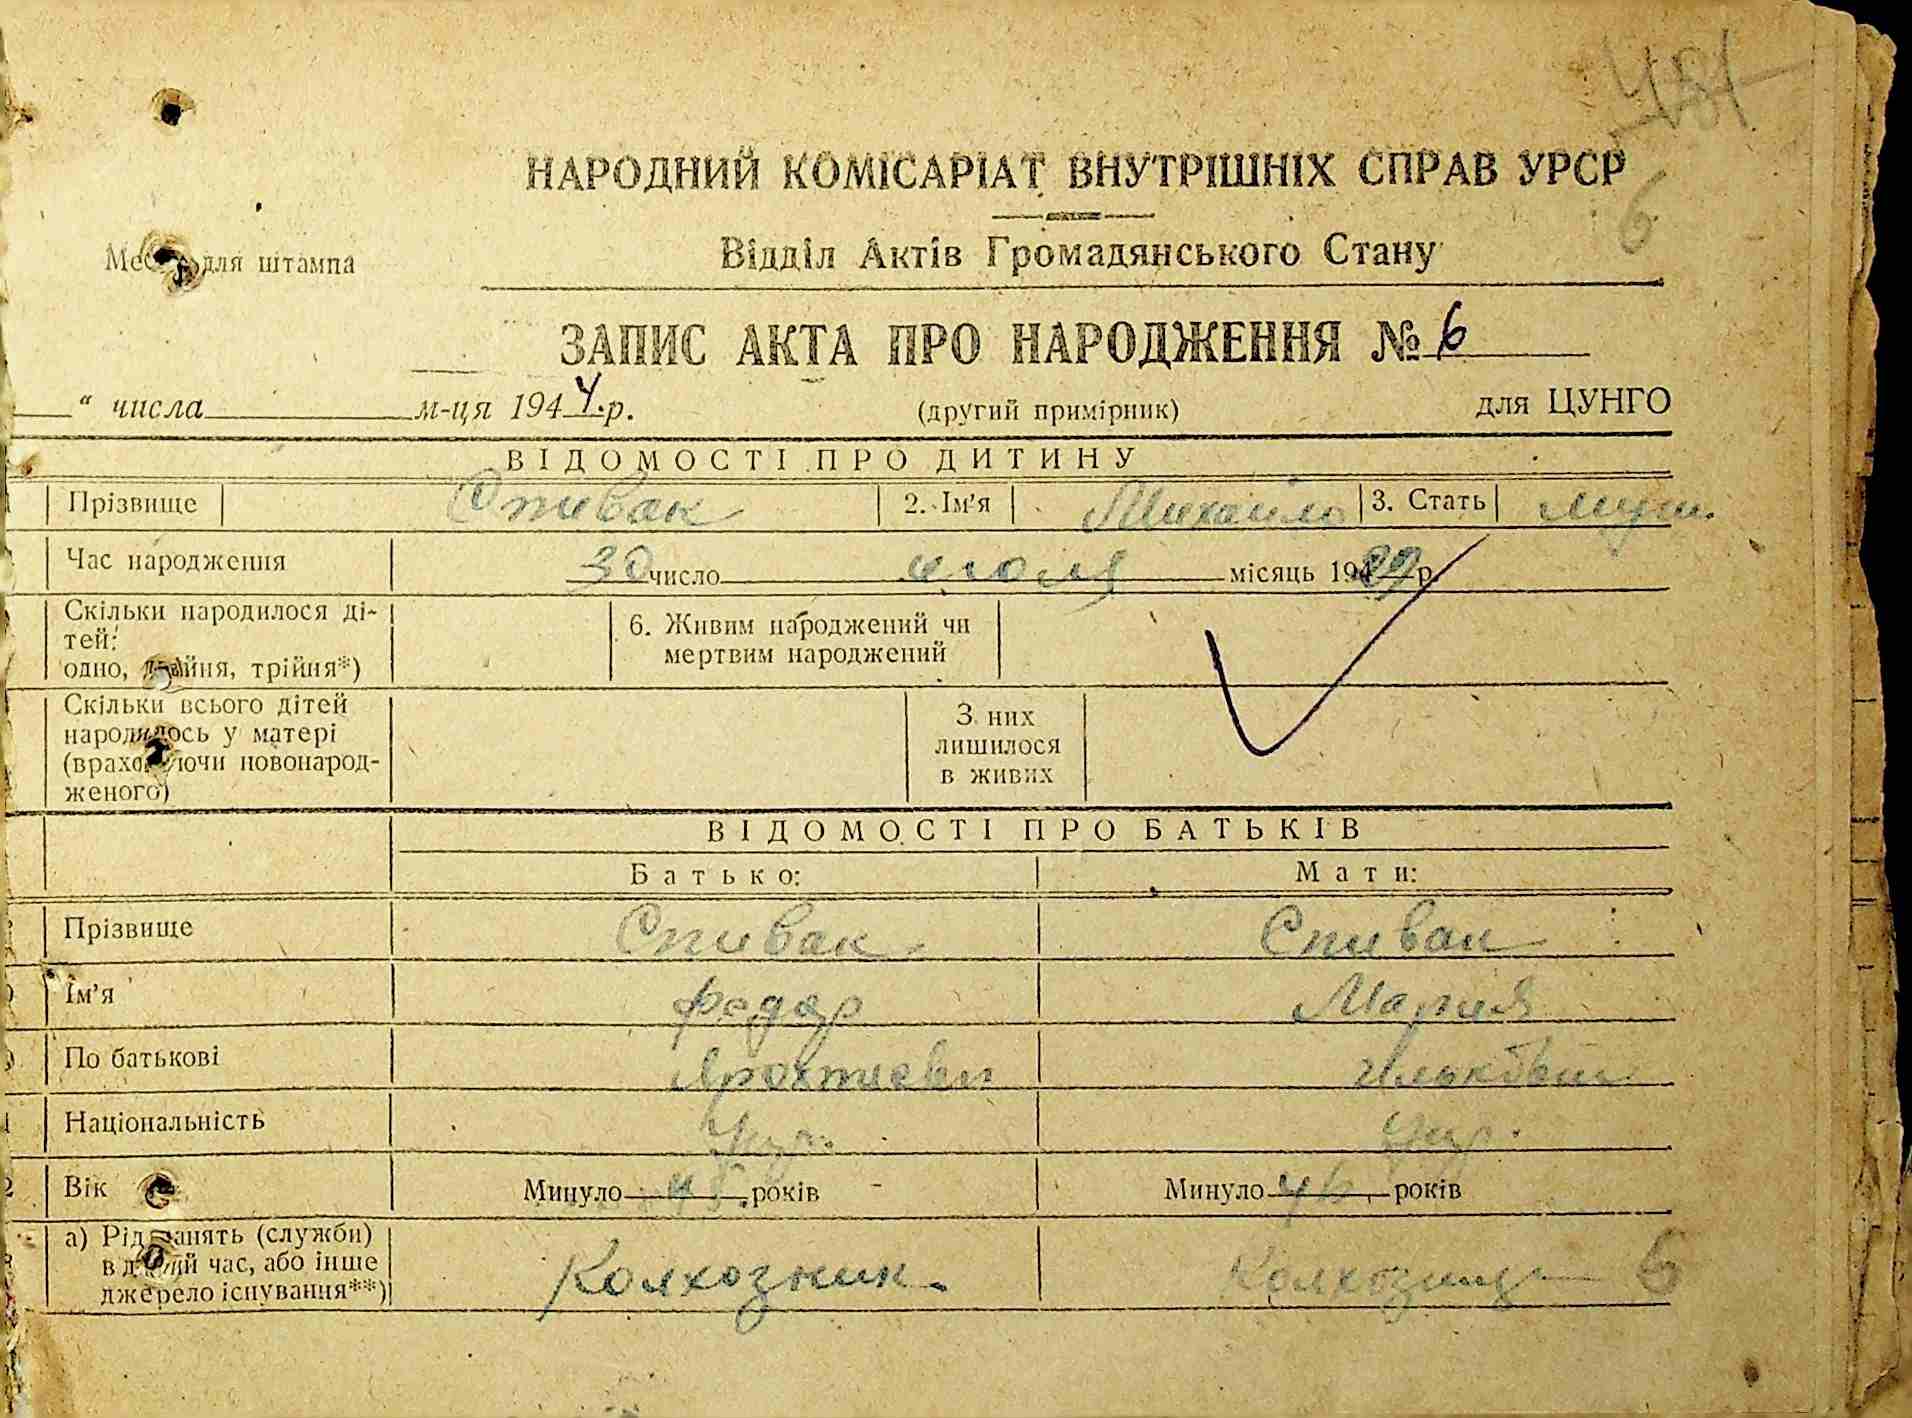 481
НАРОДНИЙ КОМІСАРІАТ ВНУТРІШНІХ СПРАВ УРСР
6
Місце для штампа
Відділ Актів Громадянського Стану
ЗАПИС АКТА ПРО НАРОДЖЕННЯ № 6
" числа м-ця 1944 р. (другий примірник) для ЦУНГО
ВІДОМОСТІ ПРО ДИТИНУ
Прізвище Спивак 2. Ім'я Михайло 3. Стать муш.
Час народження 30 число июля місяць 1929 р.
Скільки народилося ді-
тей:
одно, двійня, трійня*)
6. Живим народжений чи
мертвим народжений
Скільки всього дітей
народилось у матері
(враховуючи новонарод-
женого)
З них
лишилося
в живих
ВІДОМОСТІ ПРО БАТЬКІВ
Батько: Мати:
Прізвище Спивак Спивак
Ім'я Федор Мария
По батькові
Національність Укр. Укр.
Вік Минуло 48 років Минуло 46 років
а) Рід занять (служби)
в даний час, або інше
джерело існування**)
Колхозник Колхозница 6